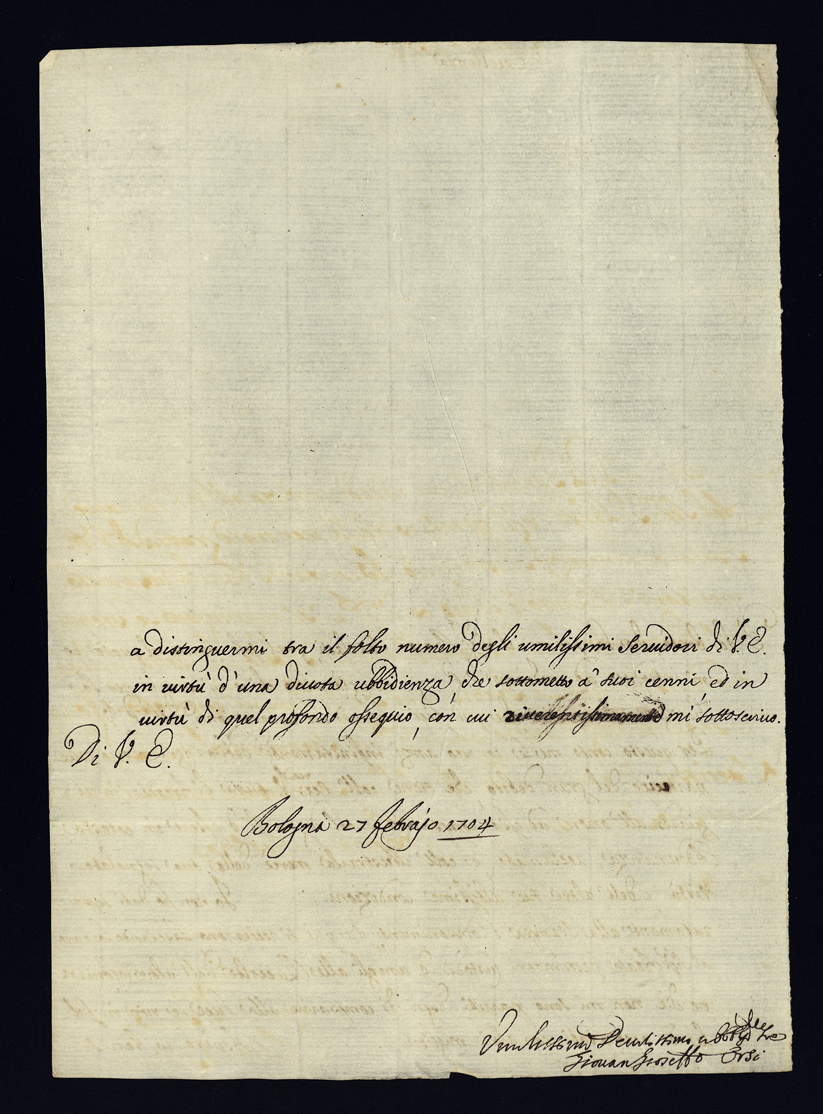 a distinguermi tra il folto numero degli umilissimi servidori di V. E.
in virtù d'una divota ubbidienza, che sottometto a' suoi cenni, ed in
virtù di quel profondo ossequio, con cui mi sottoscrivo.
Di V. E.
Bologna 27 febrajo 1704
Umilissimo Devotissimo
Giovan Gioseffo Orsi